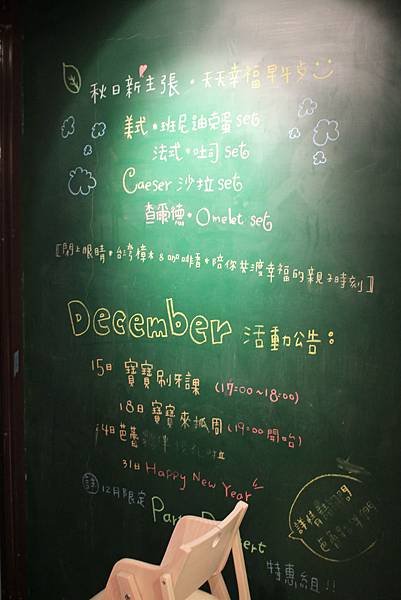 秋日新主張。天天幸福早午餐
美式。班尼迪克蛋 set
法式。吐司 set
Caeser 沙拉 set
查爾德。Omelet set
[閉上眼睛。台灣樟木&咖啡香。陪你共渡幸福的親子時刻]
December 活動公告:
15日 寶寶刷牙課 (17:00~18:00)
18日 寶寶來抓周 (19:00開始)
14日 芭蕾
31日 Happy New Year
註 12月限定
特惠組!!